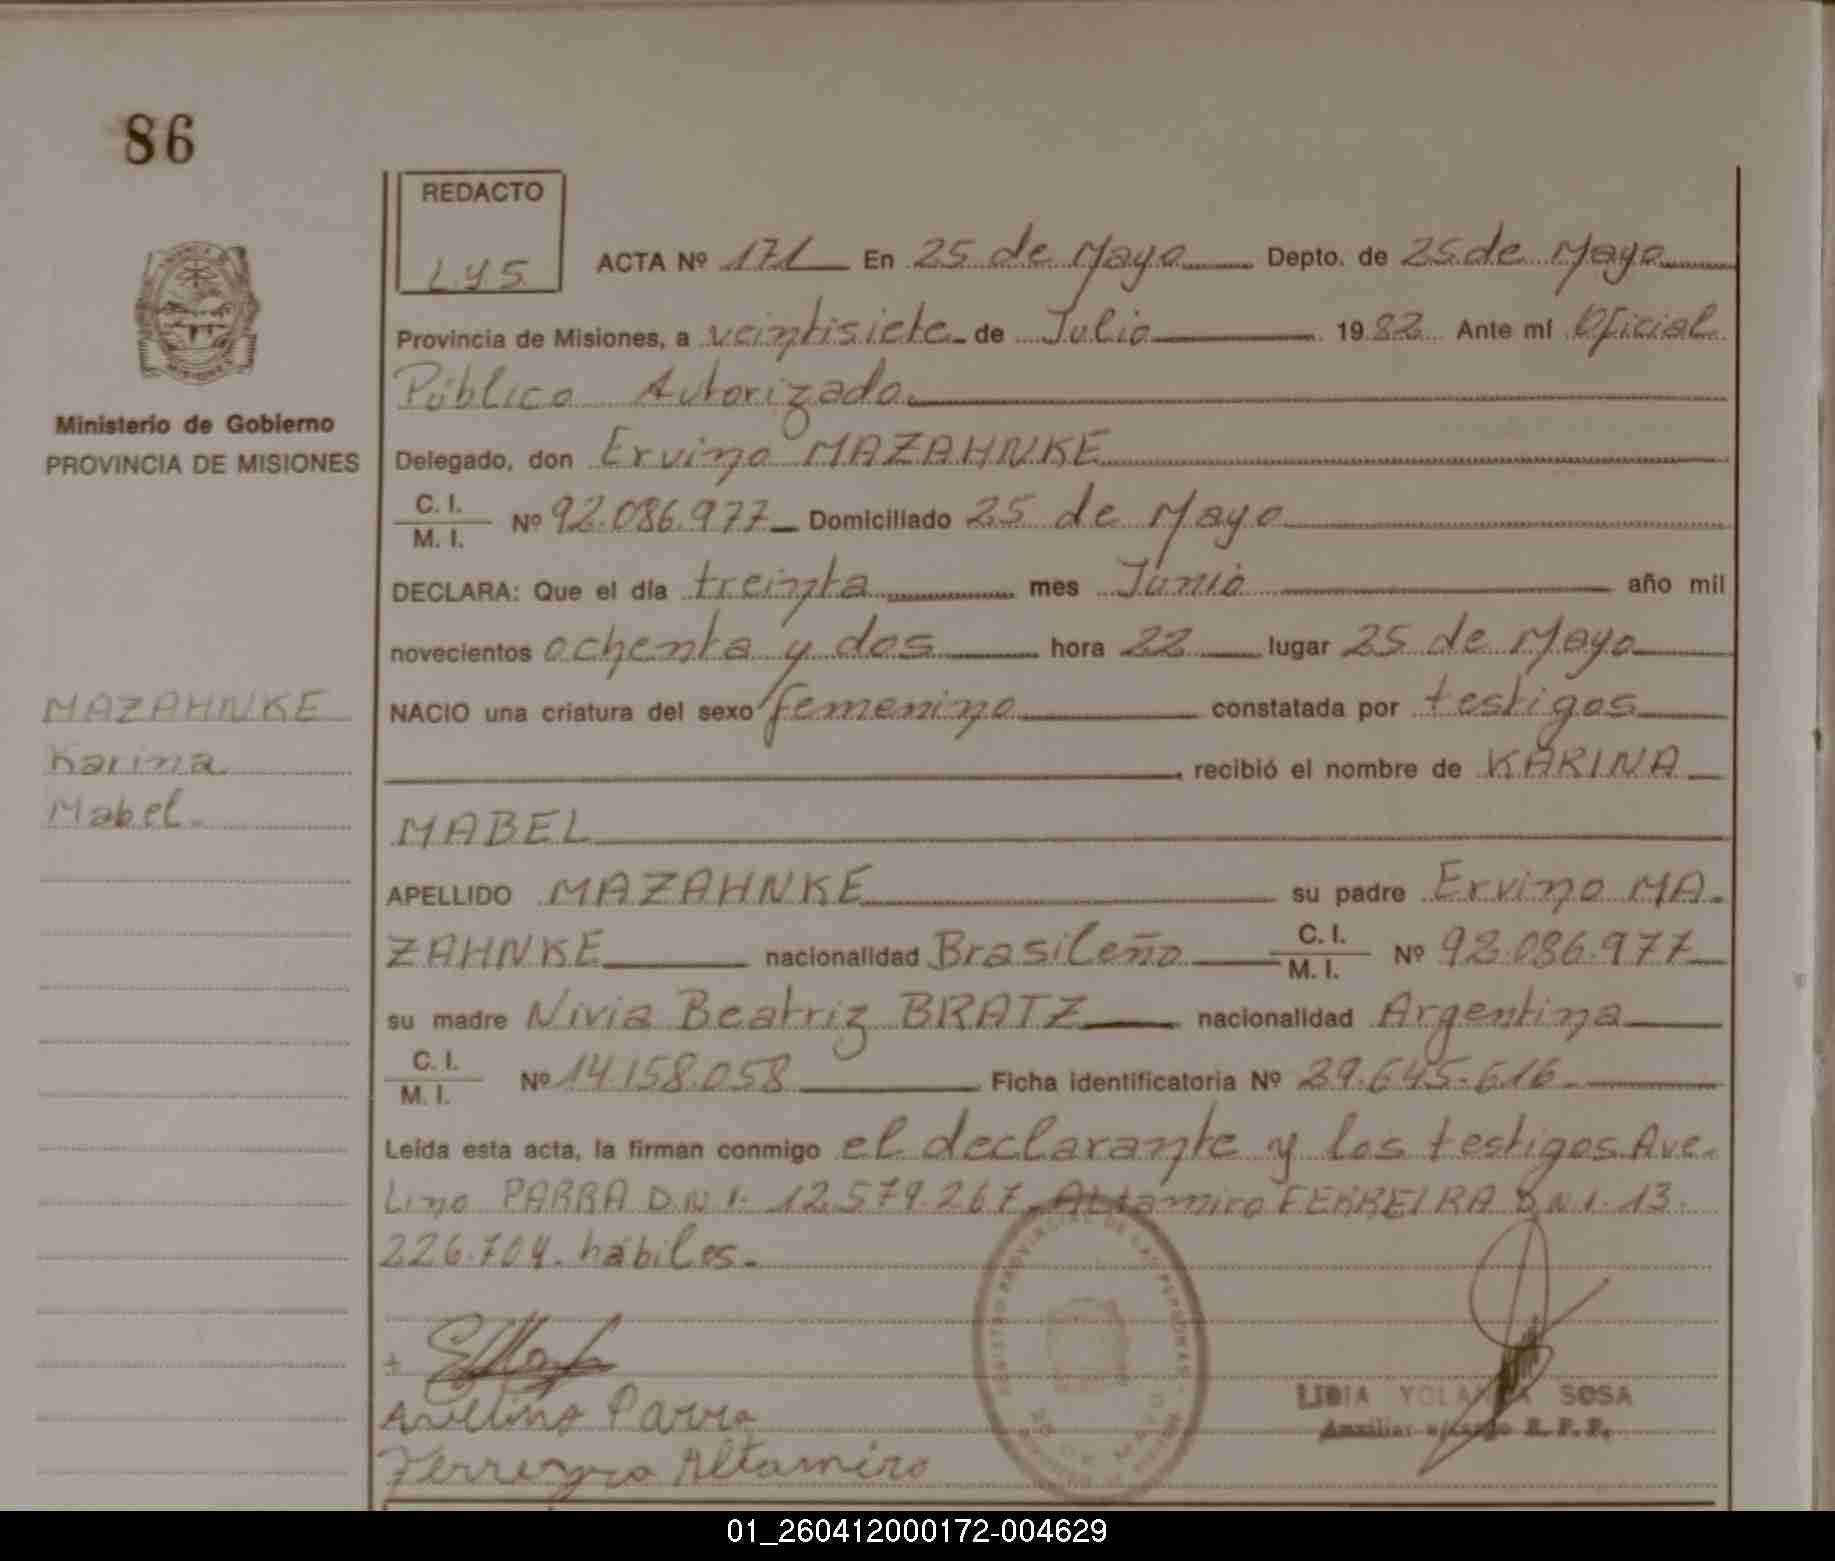 86
REDACTO
L.Y.S.
ACTA Nº 171 En 25 de Mayo Depto. de 25 de Mayo
Provincia de Misiones, a veintisiete de Julio 1982 Ante mí Oficial
Público Autorizado
Ministerio de Gobierno
PROVINCIA DE MISIONES
Delegado, don Ervino MAZAHNKE
C. I.
M. I.
Nº 92.086.977 Domiciliado 25 de Mayo
DECLARA: Que el día treinta mes Junio año mil
novecientos ochenta y dos hora 22 lugar 25 de Mayo
MAZAHNKE
Karina
Mabel.
NACIO una criatura del sexo femenino constatada por testigos
recibió el nombre de KARINA
MABEL
APELLIDO MAZAHNKE su padre Ervino MA-
ZAHNKE nacionalidad Brasileño C. I. M. I. Nº 92.086.977
su madre Nivia Beatriz BRATZ nacionalidad Argentina
C. I.
M. I.
Nº 14.158.058 Ficha identificatoria Nº 29.645.616
Leída esta acta, la firman conmigo el declarante y los testigos Ave-
lino PARRA D.N.I. 12.579.267 Altamiro FERREIRA D.N.I. 13.
226.704. hábiles.
Avelino Parra
Ferreyra Altamiro
REGISTRO PROVINCIAL DE LAS PERSONAS
25 DE MAYO
LIDIA YOLANDA SOSA
Auxiliar a/cargo R. P. P.
01_260412000172-004629